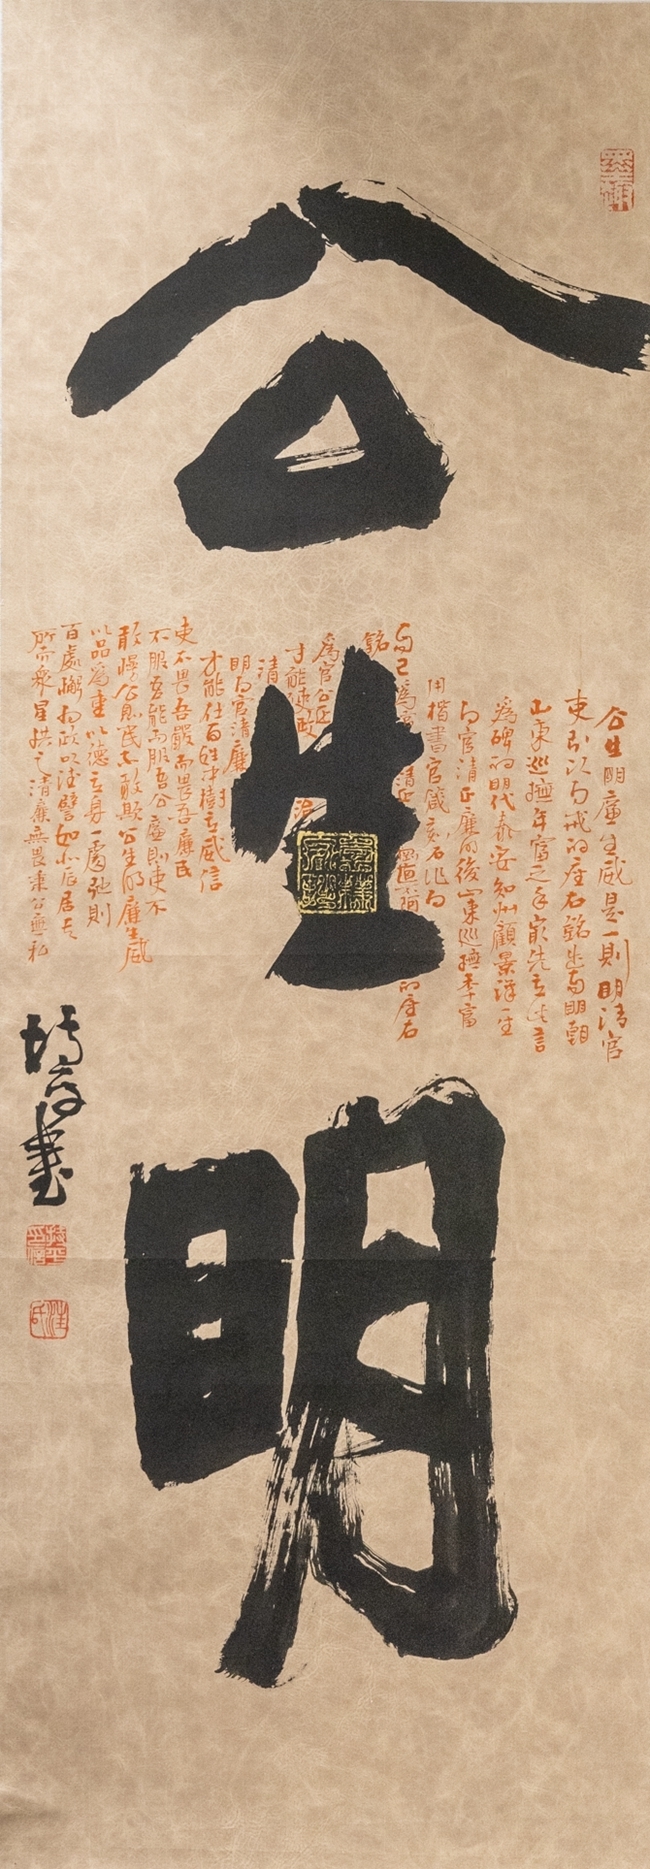 公生明
公生明廉生威是一則明清官
吏引以为戒的座右銘出自明朝
山東巡撫年富之手最先立此言
為碑的明代泰安知州顧景祥一生
为官清正廉明後山東巡撫年富
用楷書官箴刻石作为
自己為官清正的座右
銘
為官公正
才能使政
清
明为官清廉
才能在百姓中樹立威信
吏不畏吾嚴而畏吾廉民
不服吾能而服吾公廉則吏不
敢慢公則民不敢欺公生明廉生威
以品為重以德立身一處弛則
百處懈为政以德譬如北辰居其
所而衆星拱之清廉無畏秉公無私
書